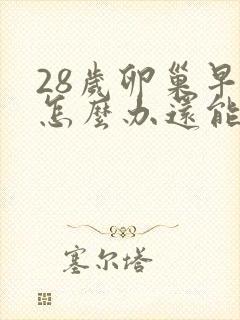 28歲卵巢早
怎麼办還能
塞尔塔